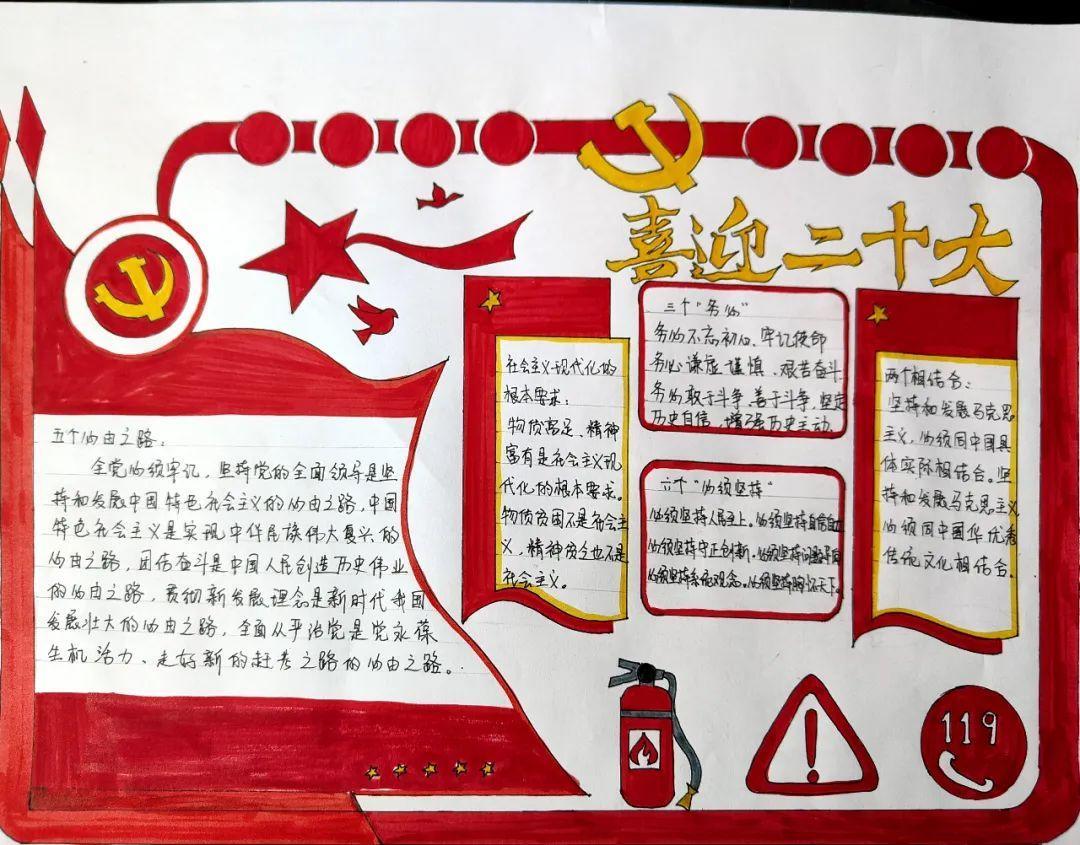 喜迎二十大
五个必由之路:
全党必须牢记,坚持党的全面领导是坚
持和发展中国特色社会主义的必由之路,中国
特色社会主义是实现中华民族伟大复兴的
必由之路,团结奋斗是中国人民创造历史伟业
的必由之路,贯彻新发展理念是新时代我国
发展壮大的必由之路,全面从严治党是党永葆
生机活力、走好新的赶考之路的必由之路。
社会主义现代化的
根本要求:
物质富足、精神
富有是社会主义现
代化的根本要求。
物质贫困不是社会主
义,精神贫乏也不是
社会主义。
三个“务必”
务必不忘初心、牢记使命
务必谦虚谨慎、艰苦奋斗
务必敢于斗争、善于斗争,坚定
历史自信,增强历史主动.
六个“必须坚持”
必须坚持人民至上。必须坚持自信自立
必须坚持守正创新。必须坚持问题导向
必须坚持系统观念。必须坚持胸怀天下。
两个相结合:
坚持和发展马克思
主义,必须同中国具
体实际相结合。坚
持和发展马克思主义
必须同中国华优秀
传统文化相结合.
119